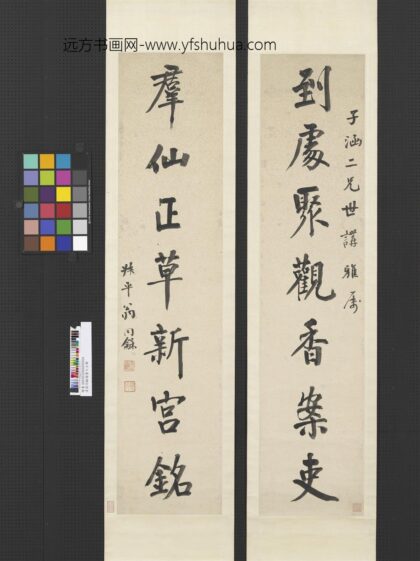 远方书画网-www.yfshuhua.com
到處聚觀香案吏
子涵二兄世講雅屬
羣仙正草新宮銘
叔平翁同龢